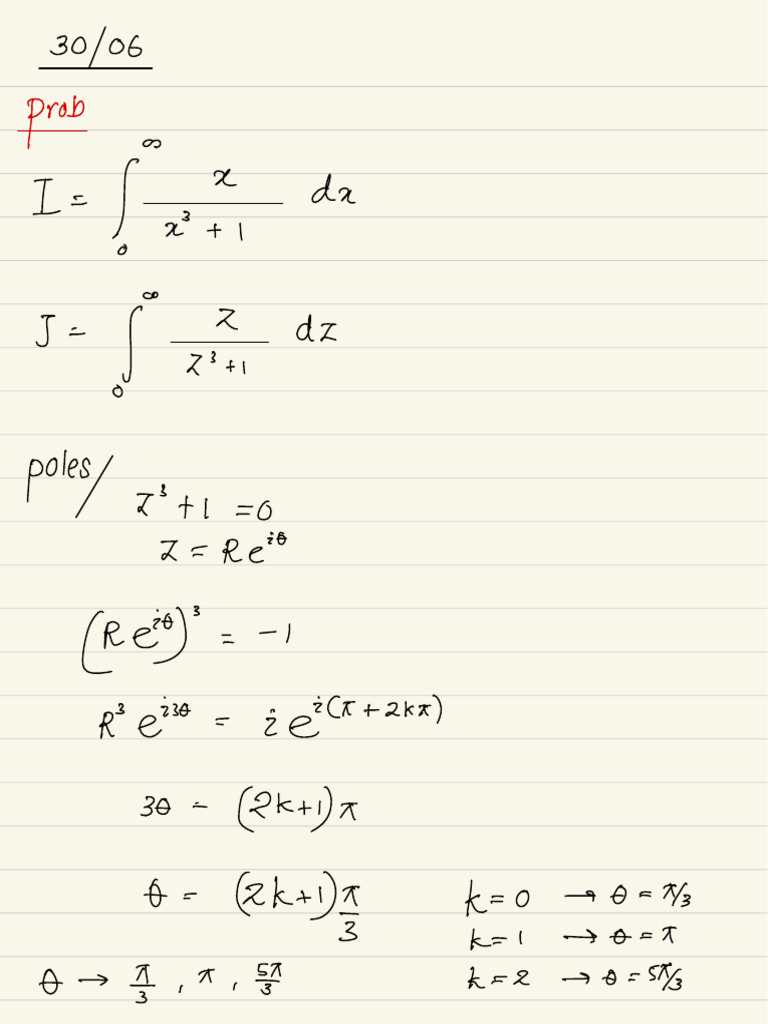 30/06
Prob
I = ∫₀^∞ x/(x³ + 1) dx
J = ∫₀^∞ z/(z³ + 1) dz
poles/
z³ + 1 = 0
z = Re^{iθ}
(Re^{iθ})³ = -1
R³ e^{i3θ} = i e^{i(π + 2kπ)}
3θ = (2k+1)π
θ = (2k+1)π/3 k = 0 → θ = π/3
k = 1 → θ = π
θ → π/3, π, 5π/3 k = 2 → θ = 5π/3